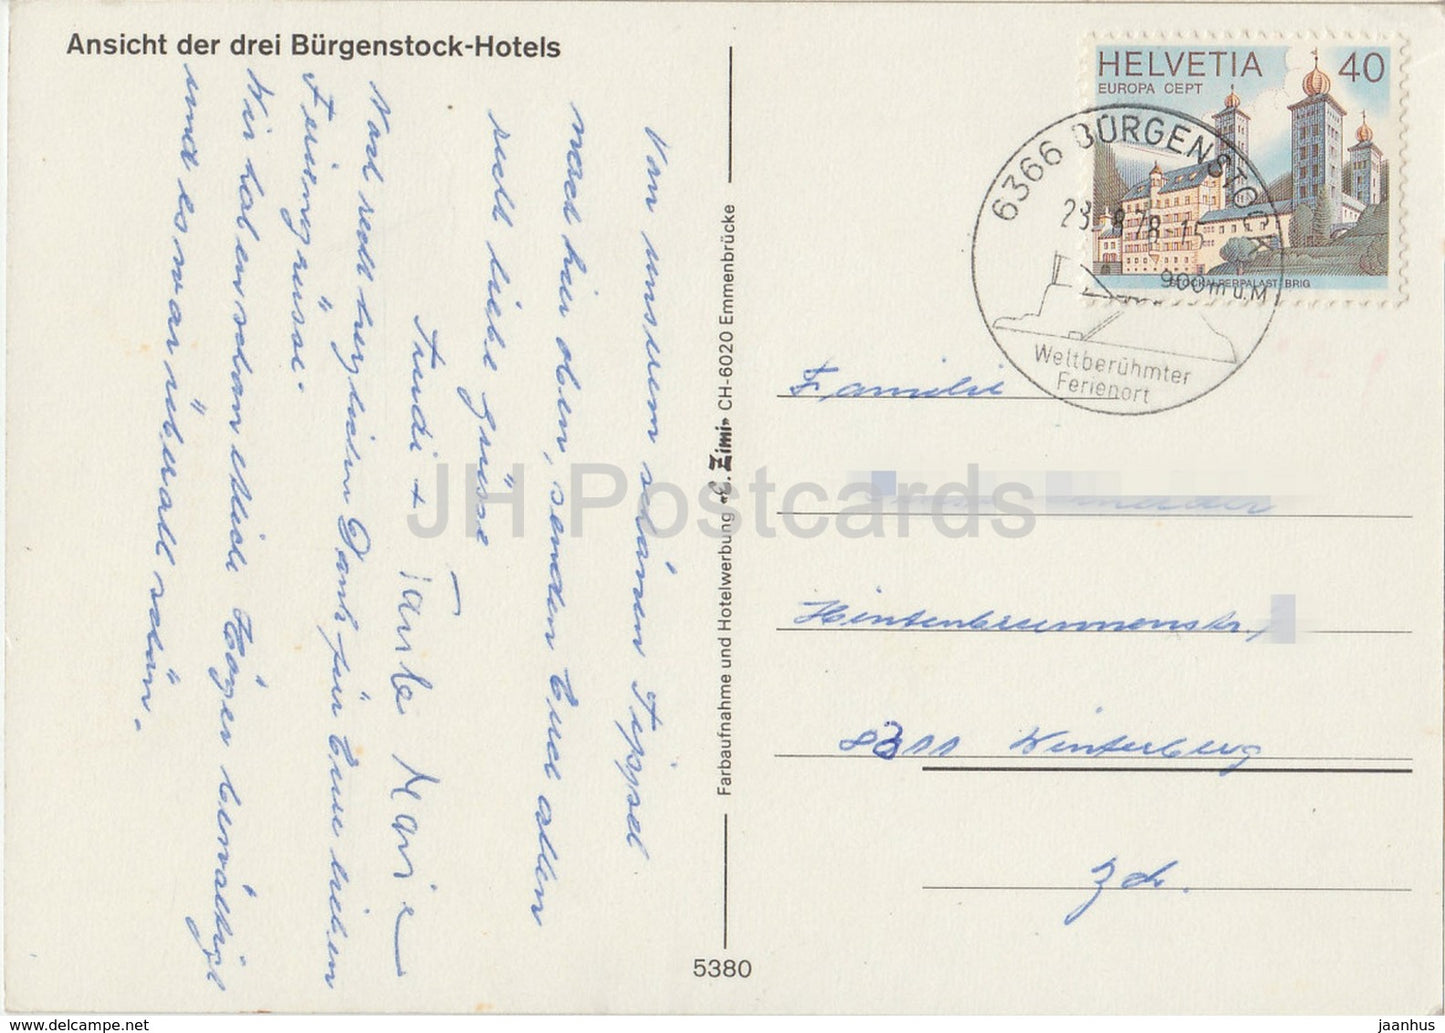 Ansicht der drei Bürgenstock-Hotels
Von unserem schönen Gipfel
hier oben, senden Euch allen
recht liebe Grüsse
Trudi + Tante Marie
Noch recht herzlichen Dank für Eure lieben
Feriengrüsse.
Wir haben schon viele Tage
und es war überall schön.
Farbaufnahme und Hotelwerbung «E. Zimi» CH-6020 Emmenbrücke
5380
HELVETIA 40
EUROPA CEPT
STOCKALPERPALAST BRIG
6366 BÜRGENSTOCK
78-15
900m ü.M
Weltberühmter
Ferienort
Familie
Hintenbrunnenstr.
Winterberg
Zch.
JH Postcards
https://www.delcampe.net
jaanhus